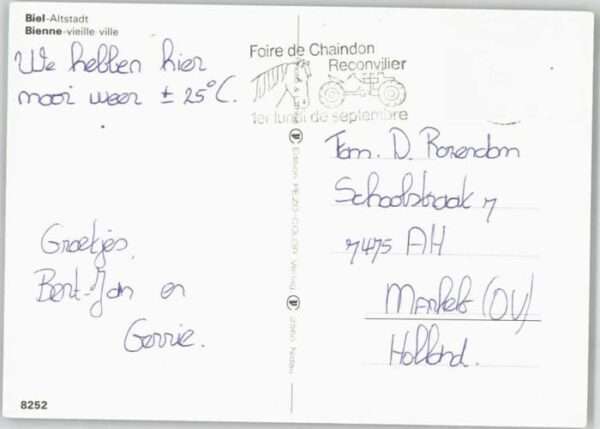 Biel-Altstadt
Bienne-vieille ville
We hebben hier
mooi weer ± 25°C.
Groetjes,
Bert-Jan en
Gerrie.
8252
Foire de Chaindon
Reconvilier
1er lundi de septembre
Fam. D. Rozendom
Schoolstraat 7
7475 AH
Markelo (OV)
Holland.